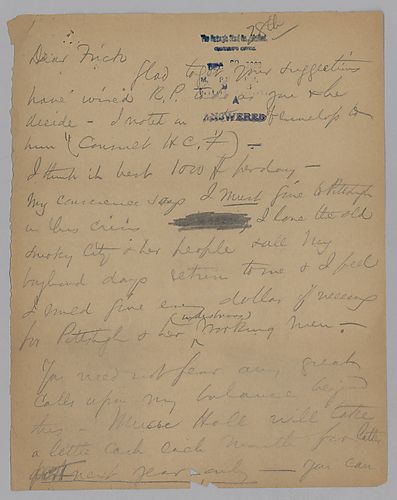 28th
The Carnegie Steel Co., Limited.
CHAIRMAN'S OFFICE.
ANSWERED
Dear Frick
Glad to get your suggestions
have wired R.P. you & he
decide – I noted in to
him "(Consult H C. F) –
I think it best 1000 $ per day –
My conscience says I Must give to Pittsbgh
in this crisis I love the old
smoky City & her people & all My
boyhood days return to me & I feel
I could give every dollar if necessary
for Pittsbgh & her (industrious) Working Men. –
You need not fear any great
calls upon my balance beyond
this – Music Hall will take
a little cash each month for latter
next year only – you can